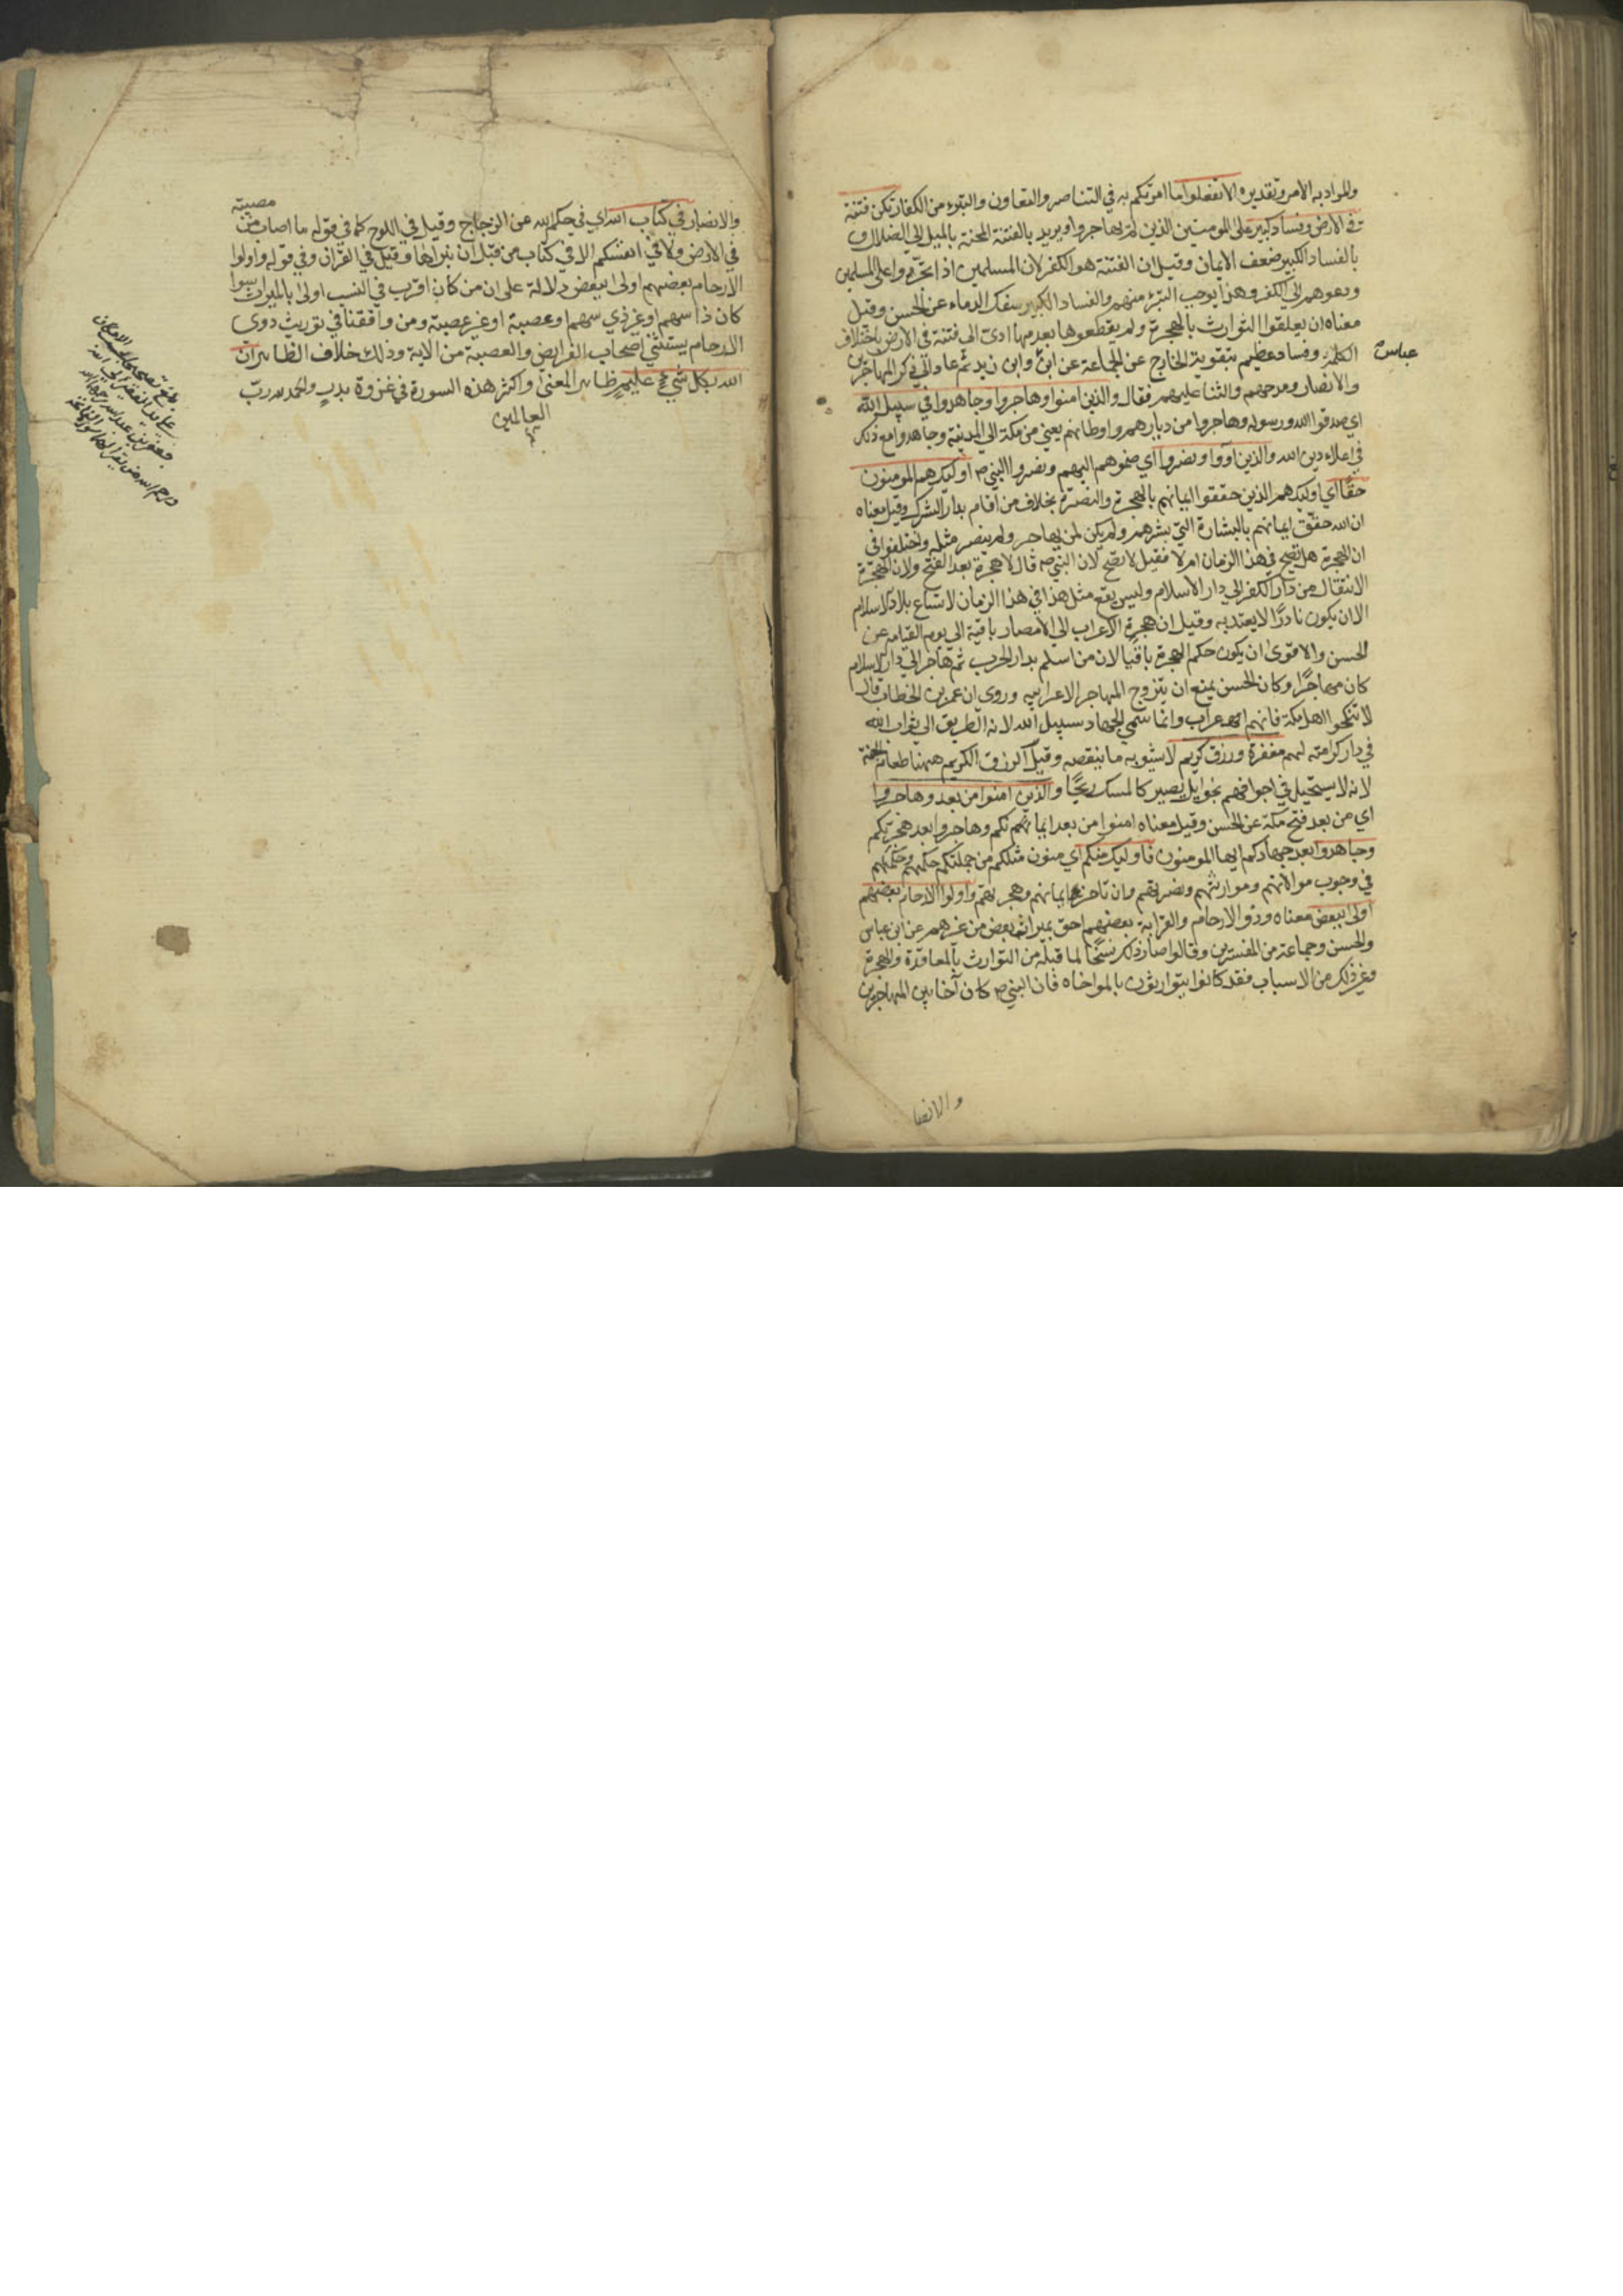 والمراد به الامر وتقديره الا تفعلوا ما امرتكم به في التناصر والتعاون والتبرء من الكفار تكن فتنة
في الارض وفساد كبير على المومنين الذين لم يهاجروا ويريد بالفتنة المحنة بالميل الى الضلال و
بالفساد الكبير ضعف الايمان وقيل ان الفتنة هو الكفر لان المسلمين اذا تجرءوا على المسلمين
ودعوهم الى الكفر وهذا يوجب التبرء منهم والفساد الكبير سفك الدماء عن الحسن وقيل
معناه ان يعلقوا التوارث بالهجرة ولم يقطعوها بعدمها ادى الى فتنة في الارض باختلاف
الكلمة وفساد عظيم بتقوية الخارج عن الجماعة عن ابن وابن زيد ثم عاد الى ذكر المهاجرين
عباس
والانصار ومدحهم والثنا عليهم فقال والذين امنوا وهاجروا وجاهدوا في سبيل الله
اي صدقوا الله ورسوله وهاجروا من ديارهم واوطانهم يعني من مكة الى المدينة وجاهدوا مع ذلك
في اعلاء دين الله والذين اووا ونصروا اي ضموهم اليهم ونصروا النبي ص اوليك هم المومنون
حقا اي اوليك هم الذين حققوا ايمانهم بالهجرة والنصرة بخلاف من اقام بدار الشرك وقيل معناه
ان الله حقق ايمانهم بالبشارة التي بشرهم ولم يكن لمن لم يهاجر ولم ينصر مثله واختلفوا في
ان الهجرة هل تصح في هذا الزمان ام لا فقيل لا تصح لان النبي ص قال لا هجرة بعد الفتح ولان الهجرة
الانتقال من دار الكفر الى دار الاسلام وليس يقع مثل هذا في هذا الزمان لاتساع بلاد الاسلام
الا ان يكون نادرا لا يعتد به وقيل ان هجرة الاعراب الى الامصار باقية الى يوم القيامه عن
الحسن والاقوى ان يكون حكم الهجرة باقيا لان من اسلم بدار الحرب ثم هاجر الى دار الاسلام
كان مهاجرا وكان الحسن يمنع ان يتزوج المهاجر الاعرابيه وروى ان عمر بن الخطاب قال
لا تنكحوا اهل مكة فانهم اعراب وانما سمي الجهاد سبيل الله لانه الطريق الى ثواب الله
في دار كرامته لهم مغفرة ورزق كريم لا يشوبه ما ينقصه وقيل الرزق الكريم ههنا طعام الجنة
لانه لا يستحيل في اجوافهم نجوا بل يصير كالمسك ريحا والذين امنوا من بعد وهاجروا
اي من بعد فتح مكة عن الحسن وقيل معناه امنوا من بعد ايمانكم وهاجروا بعد هجرتكم
وجاهدوا بعد جهادكم ايها المومنون فاوليك منكم اي منون مثلكم من جملتكم حكمهم وحكمكم
في وجوب موالاتهم وموارثتهم ونصرتهم وان تاخر ايمانهم وهجرتهم واولوا الارحام بعضهم
اولى ببعض معناه وذو الارحام والقرابة بعضهم احق بميراث بعض من غيرهم عن ابن عباس
والحسن وجماعة من المفسرين وقالوا صار ذلك نسخا لما قبله من التوارث بالمعاقدة والهجرة
وغير ذلك من الاسباب فقد كانوا يتوارثون بالمواخاه فان النبي ص كان آخا بين المهاجرين
والانصا
مصيبة
والانصار في كتاب الله اي في حكم الله عن الزجاج وقيل في اللوح كما في قوله ما اصاب من
في الارض ولا في انفسكم الا في كتاب من قبل ان نبراها وقيل في القران وفي قوله واولوا
الارحام بعضهم اولى ببعض دلالة على ان من كان اقرب في النسب اولى بالميراث سوا
كان ذا سهم او غير ذي سهم او عصبة او غير عصبة ومن وافقنا في توريث ذوى
الارحام يستثني اصحاب الفرايض والعصبة من الاية وذلك خلاف الظاهر ان
الله بكل شيء عليم ظاهر المعنى واكثر هذه السورة في غزوة بدر والحمد لله رب
العالمين